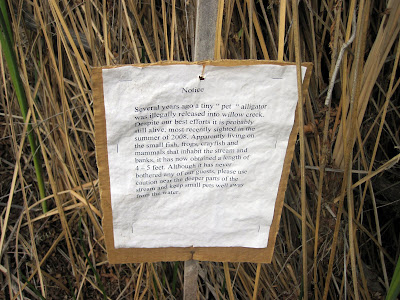 Notice
Several years ago a tiny " pet " alligator
was illegally released into willow creek.
Despite our best efforts it is probably
still alive, most recently sighted in the
summer of 2008. Apparently living on
the small fish, frogs, crayfish and
mammals that inhabit the stream and
banks, it has now obtained a length of
4 – 5 feet. Although it has never
bothered any of our guests, please use
caution near the deeper parts of the
stream and keep small pets well away
from the water.